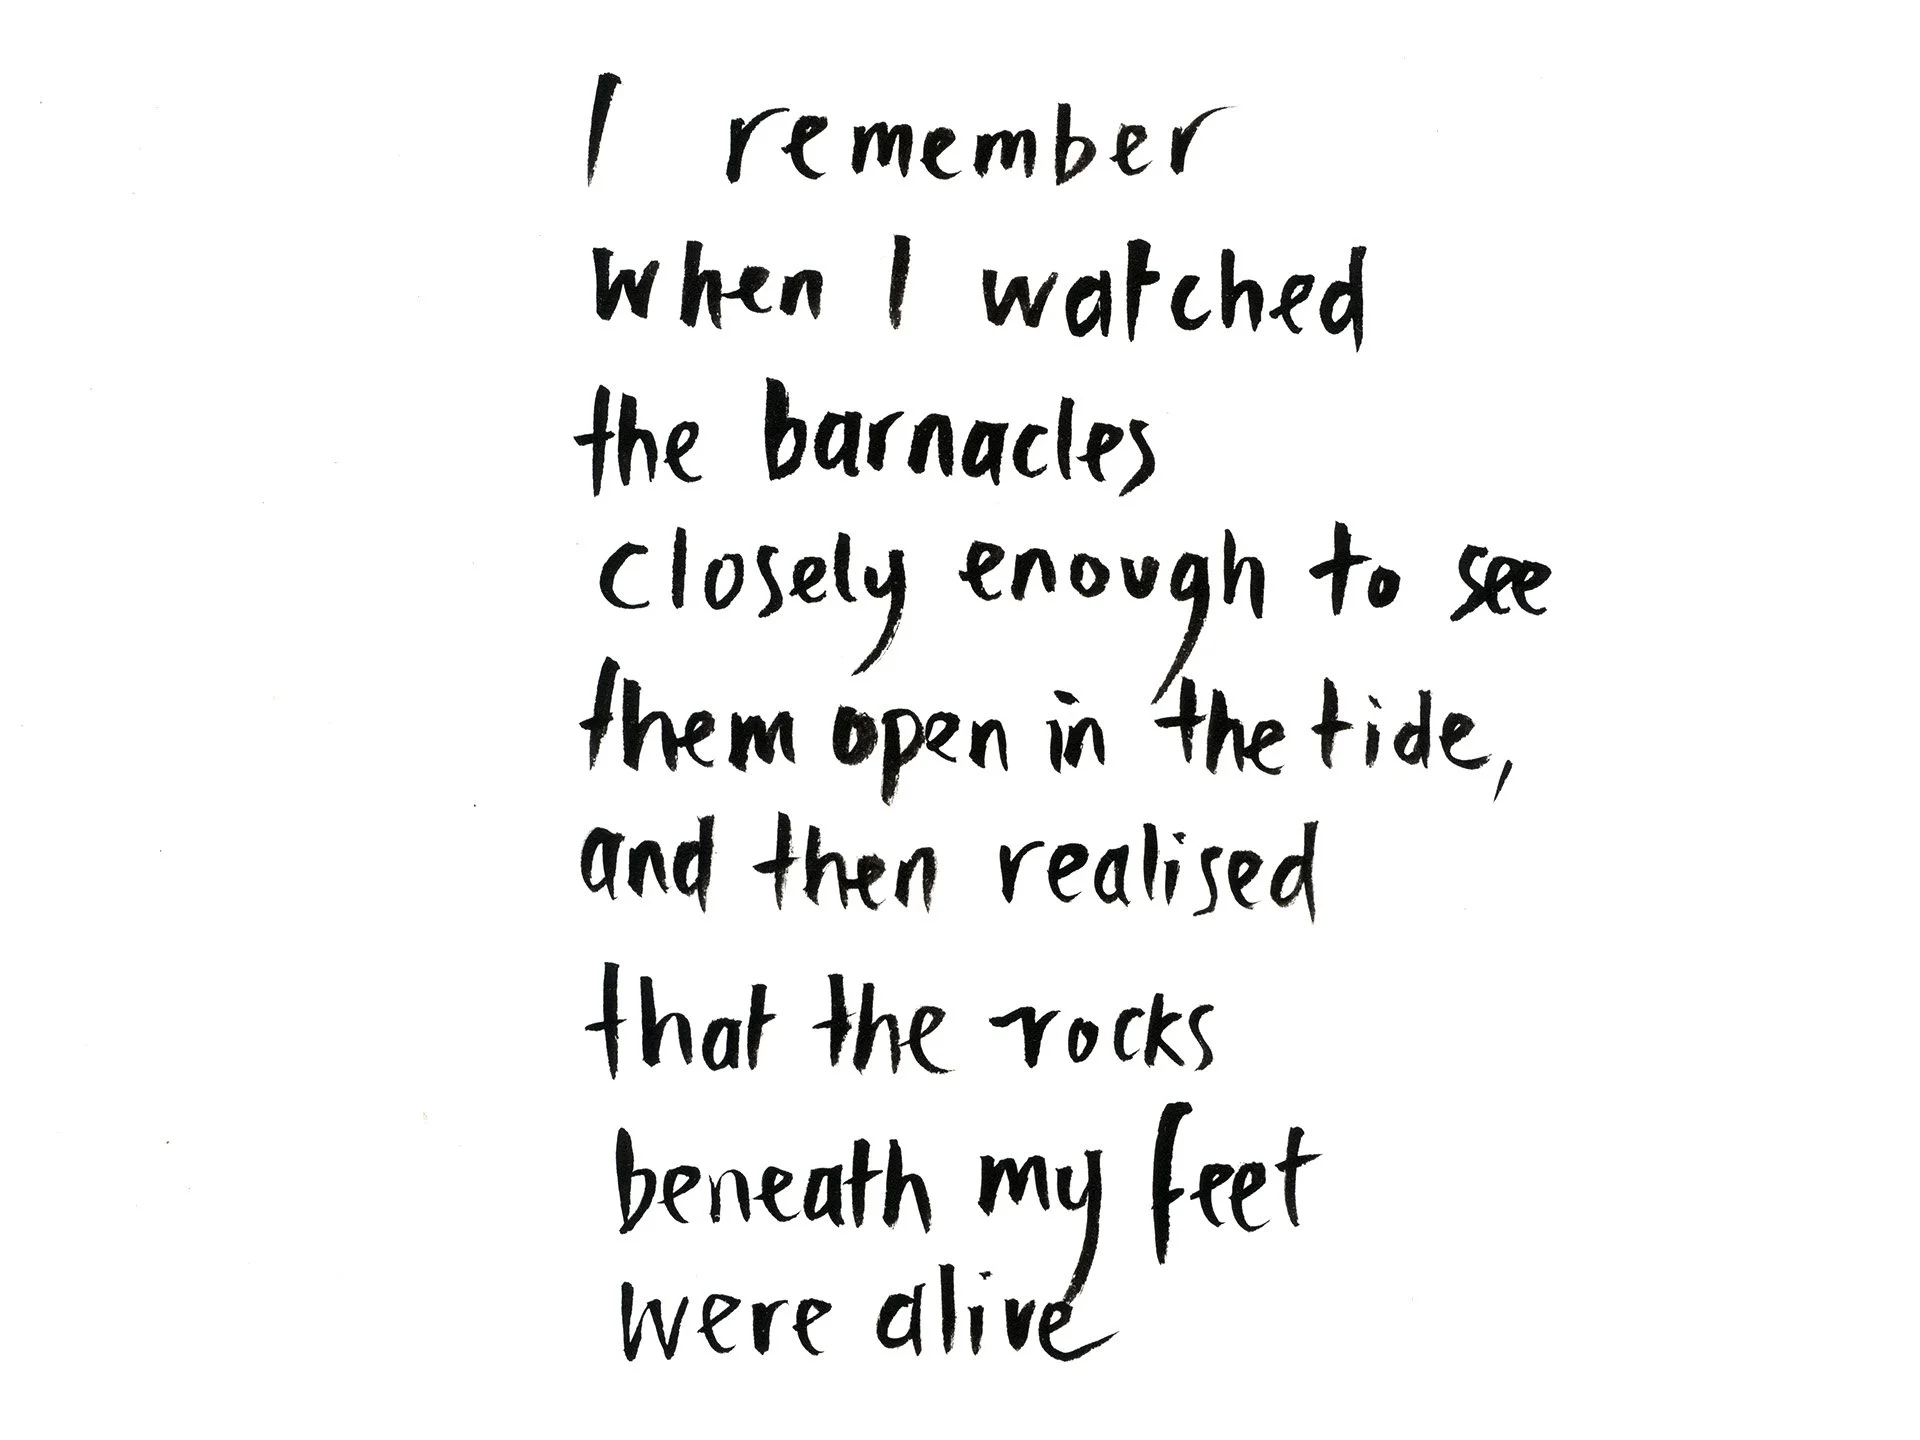 I remember
when I watched
the barnacles
closely enough to see
them open in the tide,
and then realised
that the rocks
beneath my feet
were alive